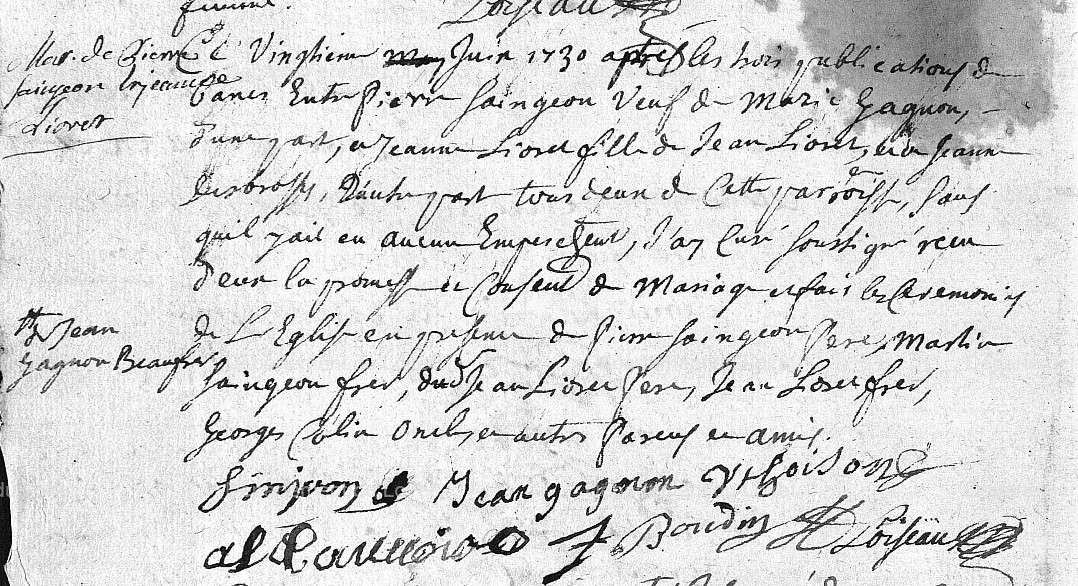 Loiseau
Mar. de Pierre
Saingeon et jeanne
Lioret
Le Vingtieme Juin 1730 apres les trois publications de
bancs Entre Pierre Saingeon Veuf de Marie Gagnon,
d'une part, et Jeanne Lioret fille de Jean Lioret, et de Jeanne
Desbrosses, D'autre part tous deux de Cette parroisse, Sans
quil y ait eu aucun Empeschemt, J'ay Curé soussigné reçeu
d'eux la promesse et Consentt de Mariage et fais les Ceremonies
de L'Eglise en presence de Pierre Saingeon Pere, Martin
Saingeon frere, dud. Jean Lioret Pere, Jean Lioret frere,
Georges Colin Oncle, et autres Parens et amis.
et Jean
Gagnon Beaufrere
Jean gagnon
Boudin Loiseau